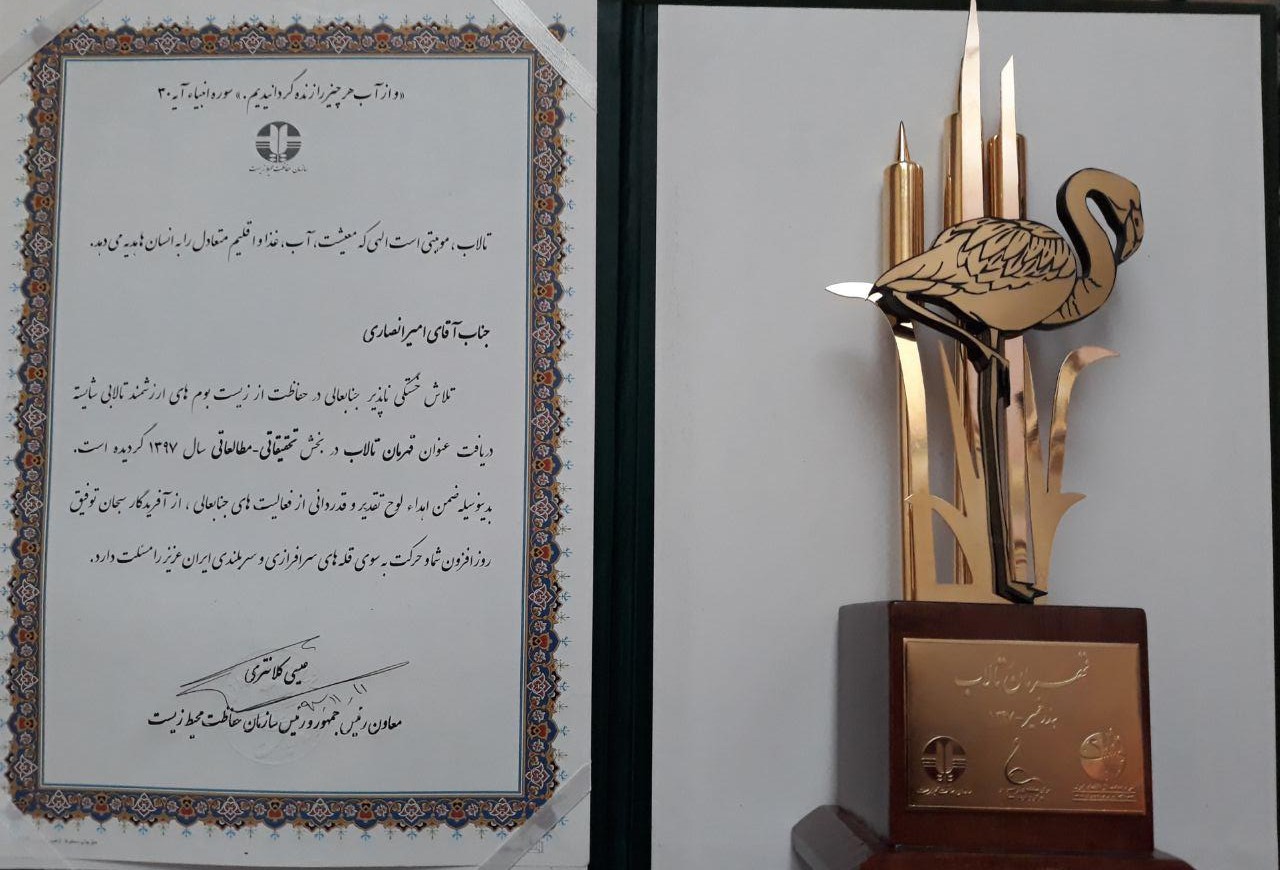 «و از آب هر چیز را زنده گردانیدیم.» سوره انبیاء آیه ۳۰
سازمان حفاظت محیط زیست
تالاب، موهبتی است الهی که معیشت، آب، غذا و اقلیم متعادل را به انسان ها هدیه می دهد.
جناب آقای امیر انصاری
تلاش خستگی ناپذیر جنابعالی در حفاظت از زیست بوم های ارزشمند تالابی شایسته
دریافت عنوان قهرمان تالاب در بخش تحقیقاتی-مطالعاتی سال ۱۳۹۷ گردیده است.
بدینوسیله ضمن اهداء لوح تقدیر و قدردانی از فعالیت های جنابعالی، از آفریدگار سبحان توفیق
روز افزون شما و حرکت به سوی قله های سرافرازی و سربلندی ایران عزیز را مسئلت دارد.
عیسی کلانتری
معاون رئیس جمهور و رئیس سازمان حفاظت محیط زیست
قهرمان تالاب
۱۳۹۷
سازمان حفاظت محیط زیست